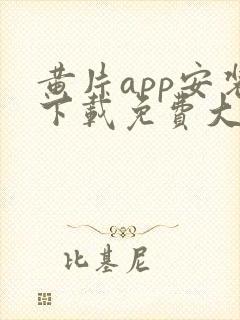 黄片app安装
下載免費大
比基尼